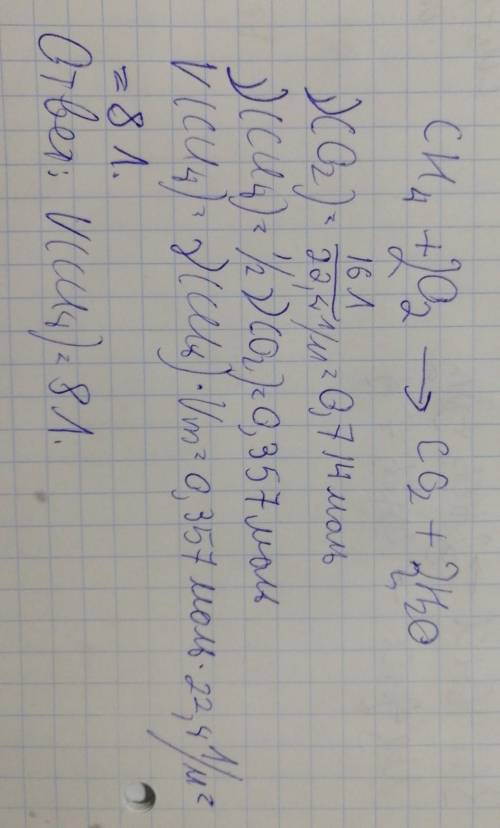 CH₄ + 2O₂ → CO₂ + 2H₂O
ν(O₂) = 16 л / 22,4 л/м = 0,714 моль
ν(CH₄) = 1/2 ν(O₂) = 0,357 моль
V(CH₄) = ν(CH₄) · Vm = 0,357 моль · 22,4 л/м =
= 8 л.
Ответ: V(CH₄) = 8 л.